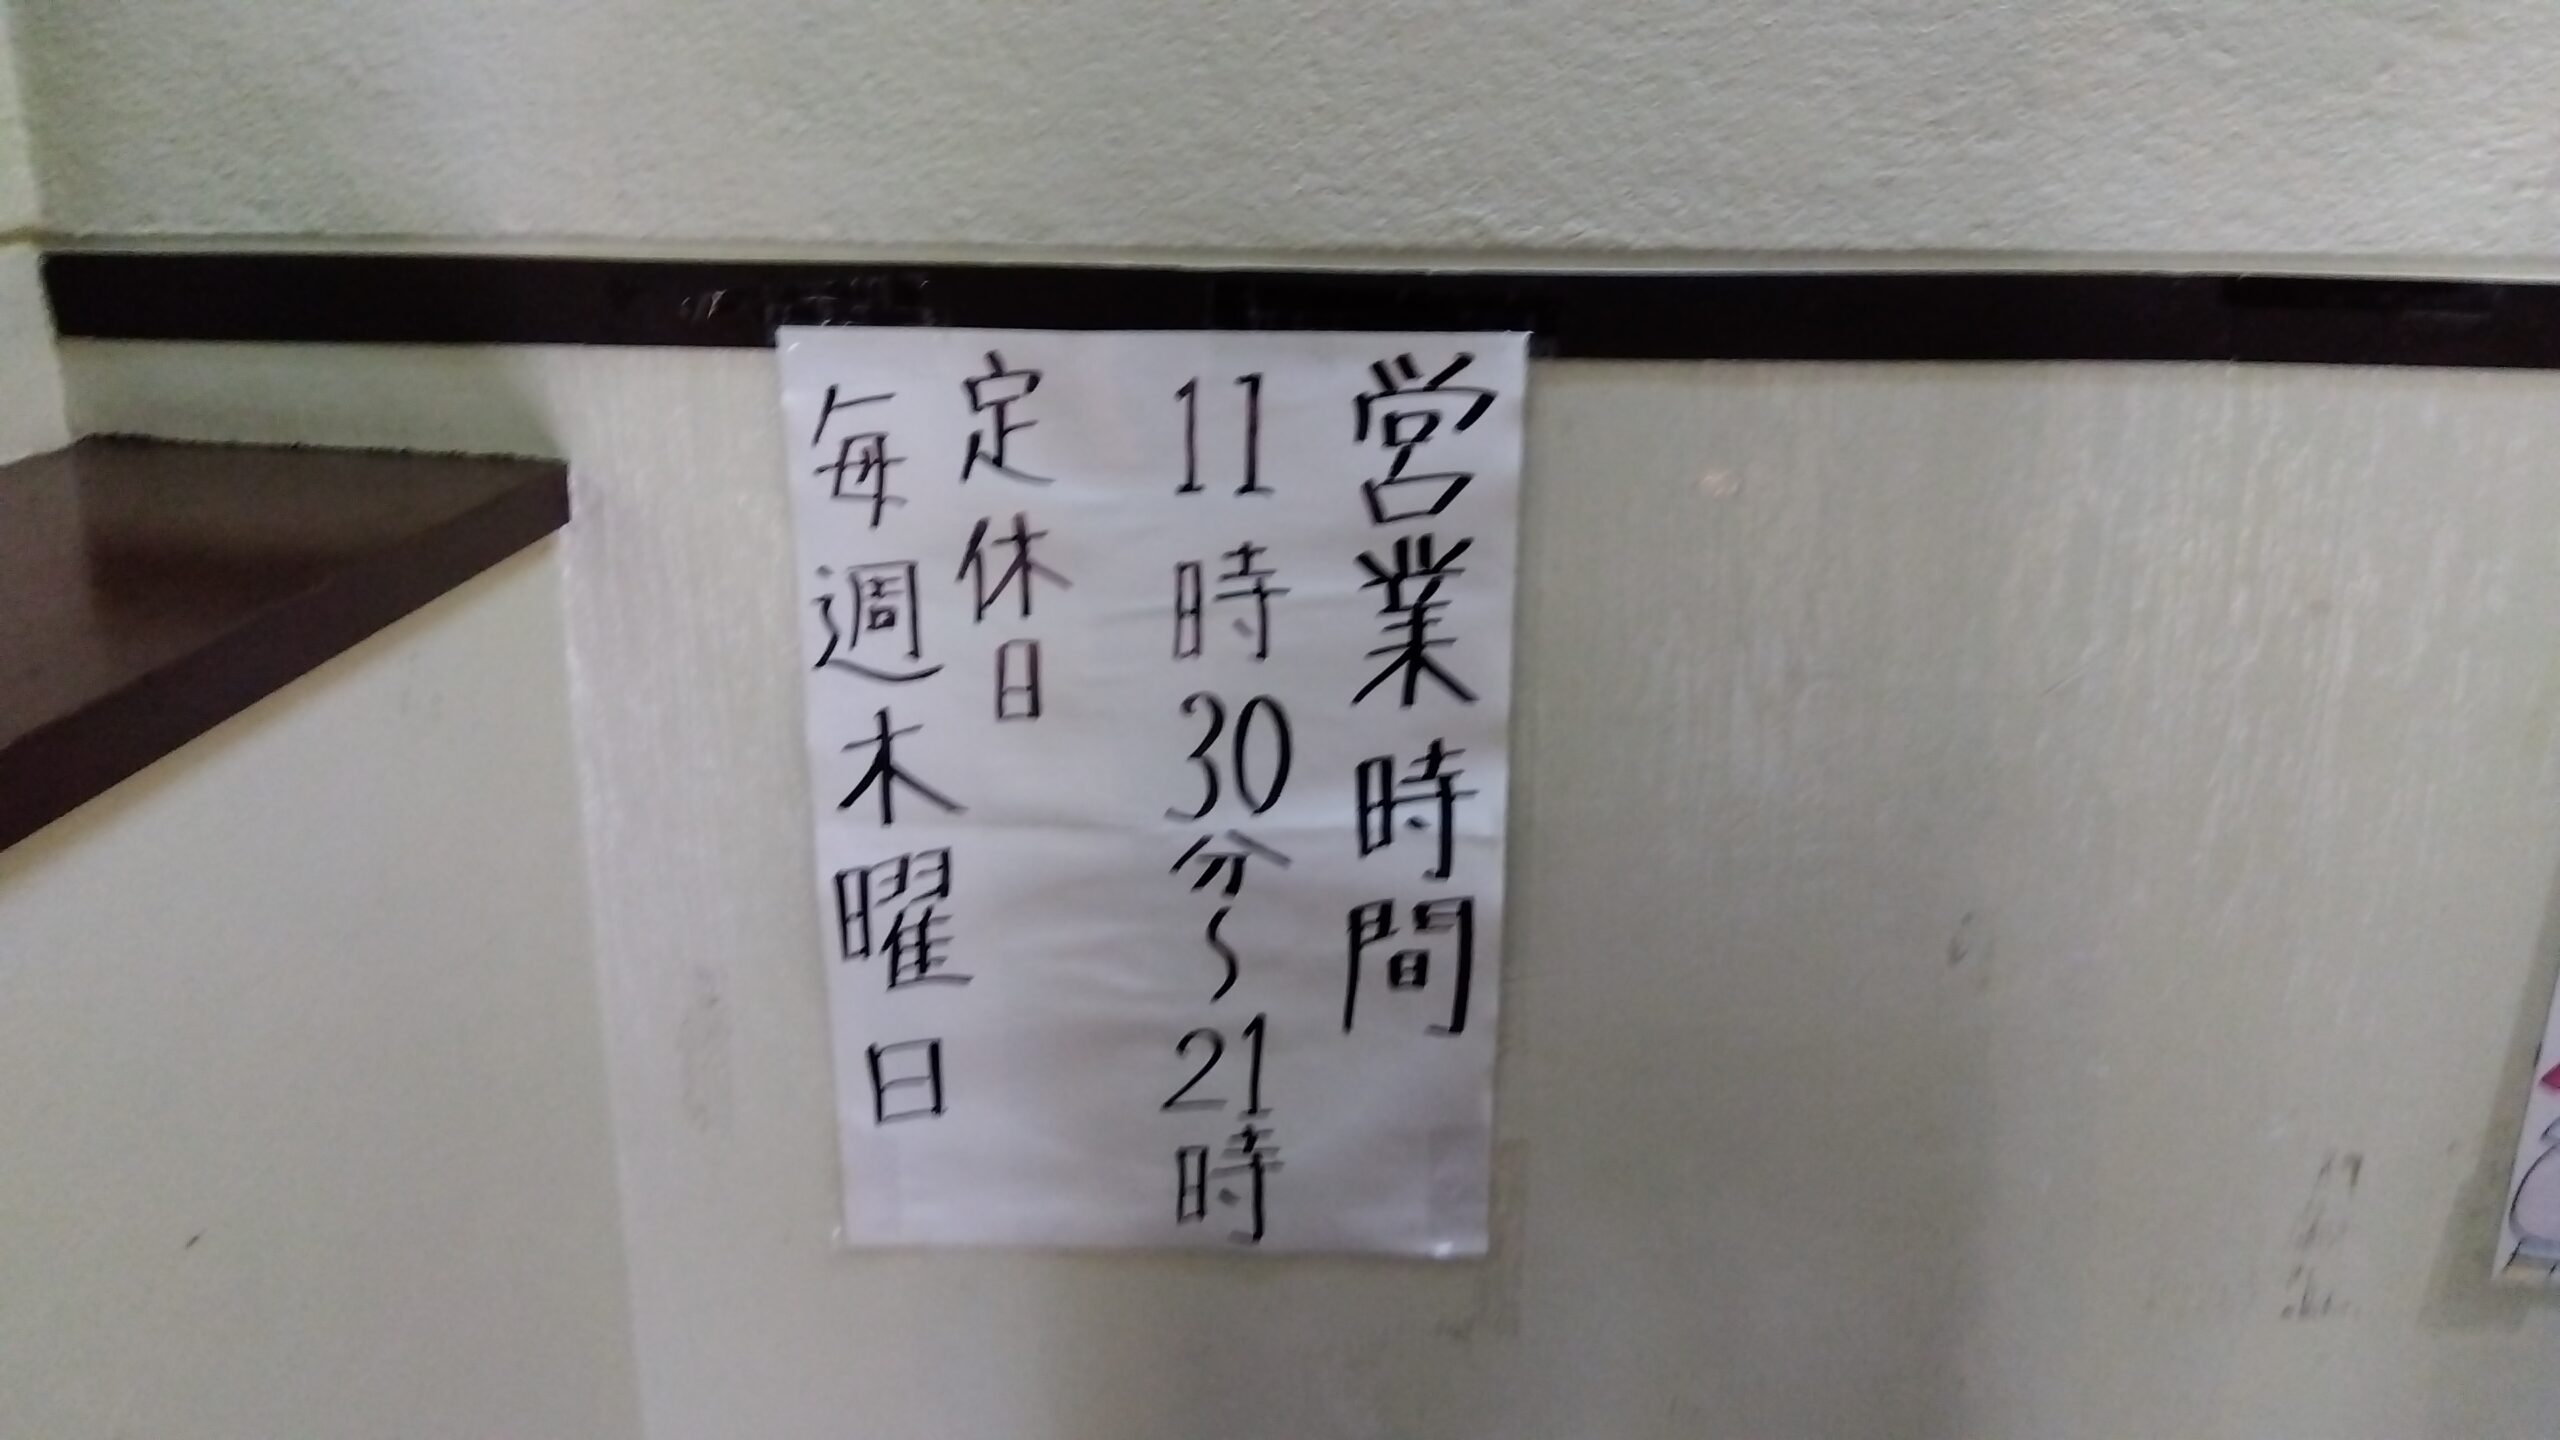 営業時間
11時30分～21時
定休日
毎週木曜日